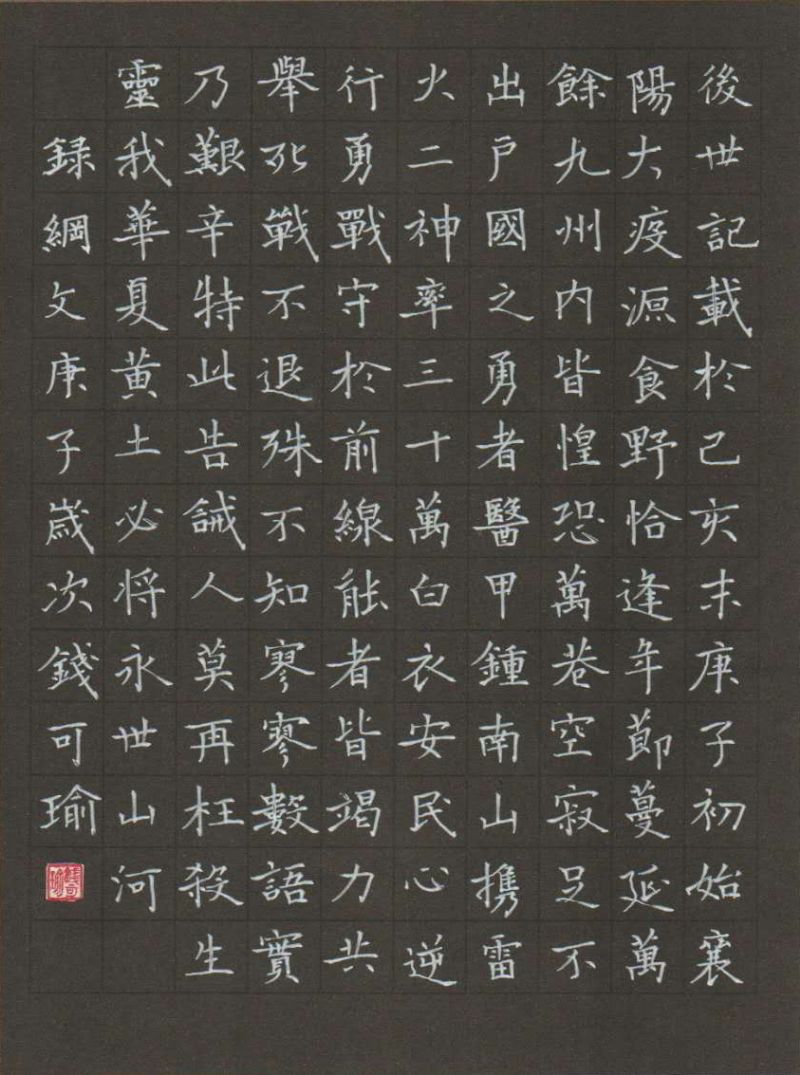 後世記載於己亥末庚子初始襄
陽大疫源食野恰逢年節蔓延萬
餘九州内皆惶恐萬巷空寂足不
出户國之勇者醫甲鍾南山携雷
火二神率三十萬白衣安民心逆
行勇戰守於前線能者皆竭力共
舉死戰不退殊不知寥寥數語實
乃艱辛特此告誡人莫再枉殺生
靈我華夏黄土必將永世山河
録網文庚子歲次錢可瑜